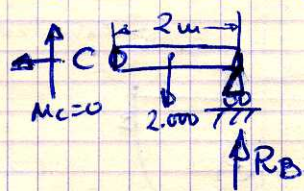 2m
C
Mc=0
2.000
RB